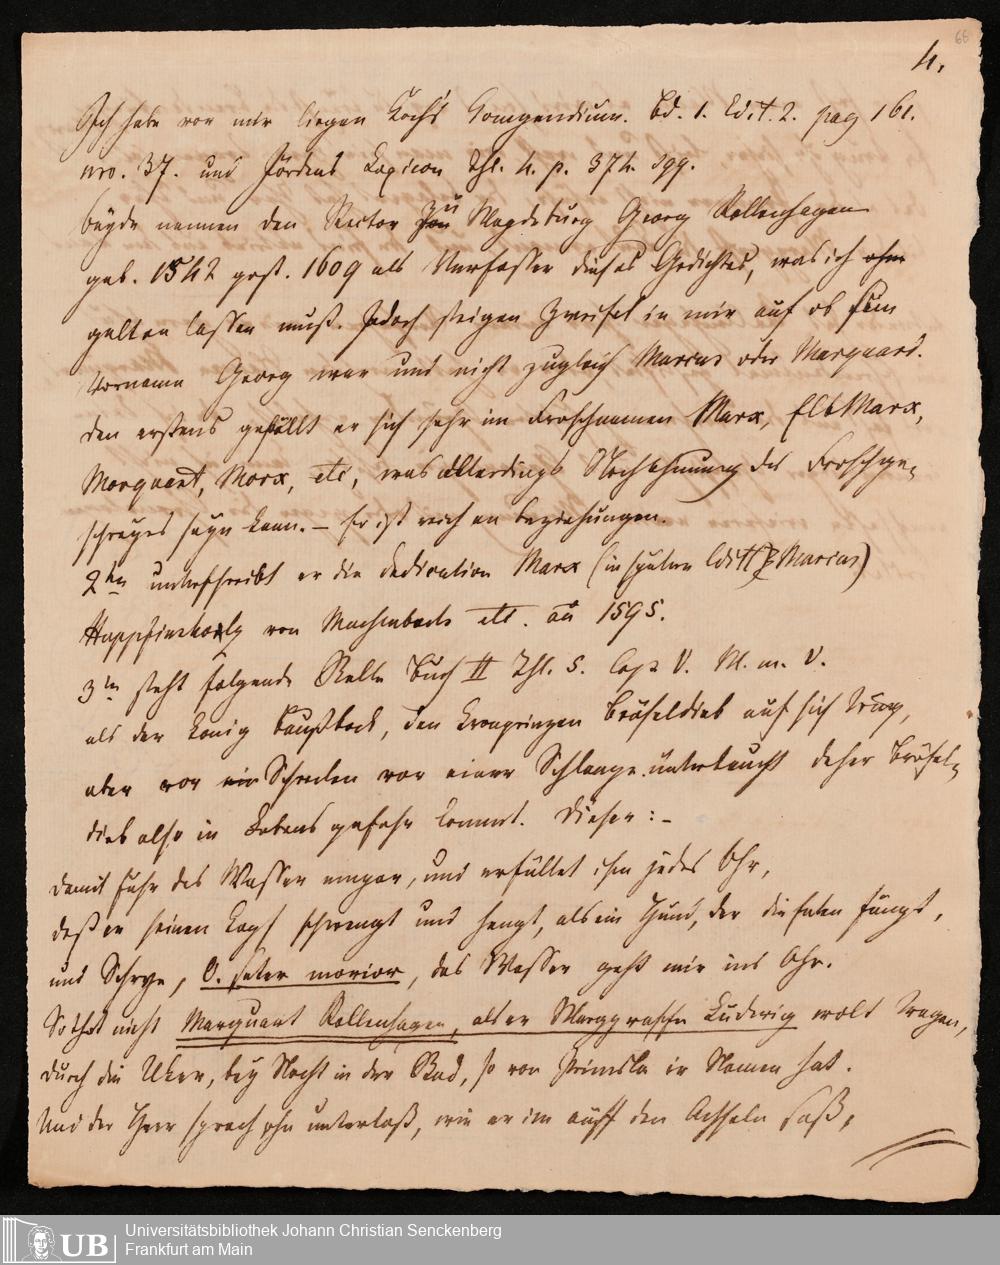 68
4.
Ich habe vor mir liegen Koch's Compendium. Bd. 1. Edit. 2. pag 161.
nro. 37. und Jördens Lexicon Thl. 4. p. 374. sqq.
beyde nennen den Rector zu Magdeburg Georg Rollenhagen
geb. 1542 gest. 1609 als Verfasser dieses Gedichtes, was ich
gelten lassen muß. Jedoch steigen Zweifel in mir auf ob sein
Vorname Georg war und nicht zugleich Marcus oder Marquard.
den erstens gefällt er sich sehr im Froschnamen Marx, ElbMarx,
Morquart, Morx, etc, was allerdings Nachahmung des Froschge-
schreyes seyn kann. – Er ist reich an Beziehungen.
2tens unterschreibt er die Dedication Marx (in spätern Editt Marcus)
Hupffinsholz von Machenbach etc. an 1595.
3tens steht folgende Stelle Buch II Thl. 5. Cap V. M. m. V.
als der König Baußback, den Kronprinzen Bröseldieb auf sich trug,
aber vor Schrecken vor einer Schlange untertaucht daher Brösel-
dieb also in Lebensgefahr kommt. Dieser: –
Damit fuhr das Wasser empor, und erfüllet ihm jedes Ohr,
daß er seinen Kopf schwengt und hengt, als ein Hund, der die Enten fängt,
und Schrye, O. pater morior, das Wasser geht mir ins Ohr.
So that nicht Marquart Rollenhagen, als er Marggraffe Ludwig wolt tragen,
durch die Uker, bey Nacht in der Bad, so von Primsla ir Namen hat.
Und der Herr sprach ohn unterlaß, wie er im auff den Achseln saß,
UB
Universitätsbibliothek Johann Christian Senckenberg
Frankfurt am Main